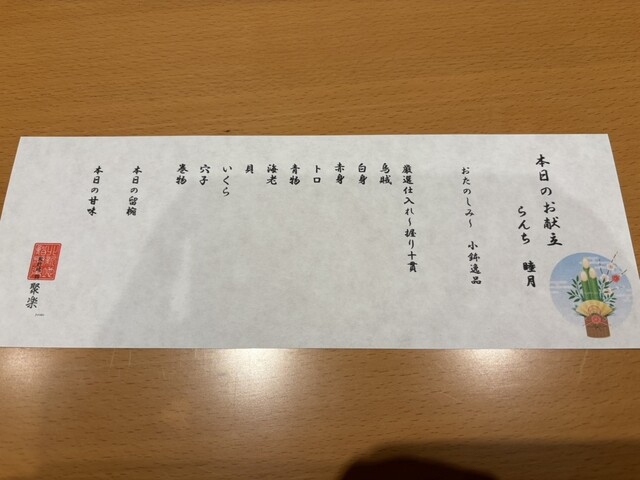 本日のお献立
らんち　睦月
おたのしみ〜　小鉢逸品
厳選仕入れ〜握り十貫
烏賊
白身
赤身
トロ
青物
海老
貝
いくら
穴子
巻物
本日の留椀
本日の甘味
聚楽